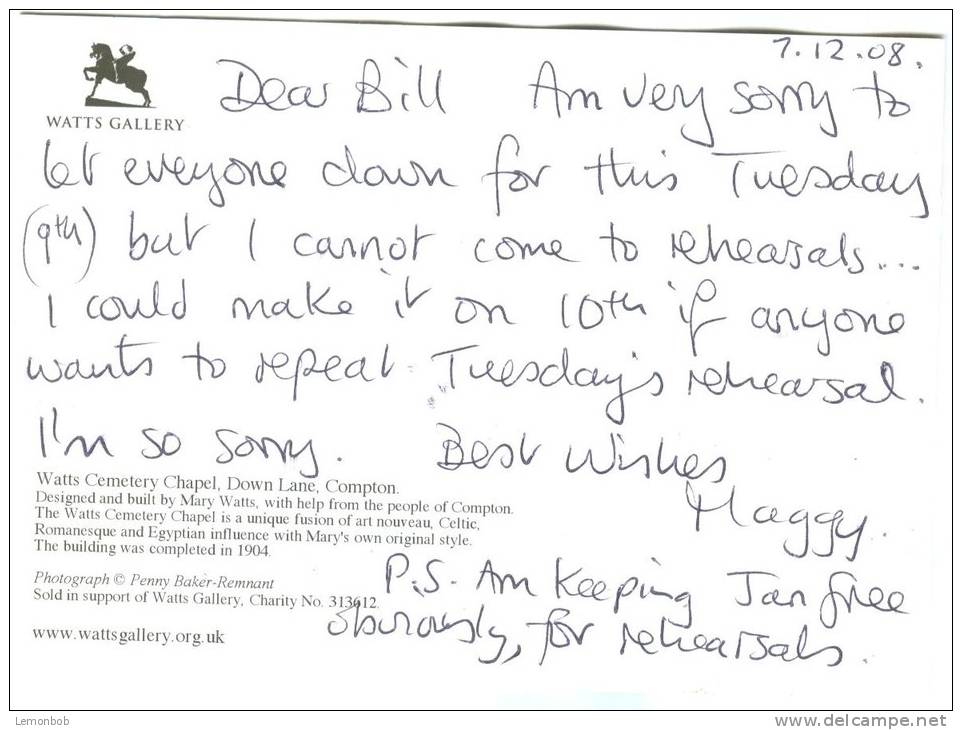 7.12.08.
Dear Bill Am very sorry to
WATTS GALLERY
let everyone down for this Tuesday
(9th) but I cannot come to rehearsals...
I could make it on 10th if anyone
wants to repeat Tuesday's rehearsal.
I'm so sorry. Best Wishes
Maggy.
Watts Cemetery Chapel, Down Lane, Compton.
Designed and built by Mary Watts, with help from the people of Compton.
The Watts Cemetery Chapel is a unique fusion of art nouveau, Celtic,
Romanesque and Egyptian influence with Mary's own original style.
The building was completed in 1904.
Photograph © Penny Baker-Remnant
Sold in support of Watts Gallery, Charity No. 313612.
www.wattsgallery.org.uk
P.S. Am keeping Jan free
obviously, for rehearsals.
Lemonbob
www.delcampe.net